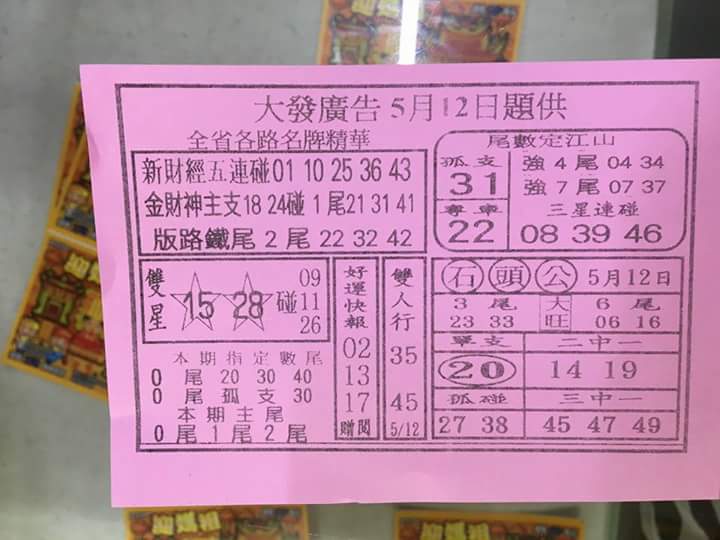 大發廣告5月12日題供
全省各路名牌精華
新財經五連碰01 10 25 36 43
金財神主支18 24碰 1 尾21 31 41
版路鐵尾 2 尾 22 32 42
尾數定江山
孤支
31
專車
22
強 4 尾 04 34
強 7 尾 07 37
三星連碰
08 39 46
雙星
15 28 碰
09
11
26
本期指定數尾
0 尾 20 30 40
尾孤支30
本期主尾
0 尾 1 尾 2 尾
好運快報
02
13
17
贈閱
雙人行
35
45
5/12
石頭公 5月12日
3 尾
23 33
大旺
6 尾
06 16
單支
20
二中一
14 19
孤碰
27 38
三中一
45 47 49